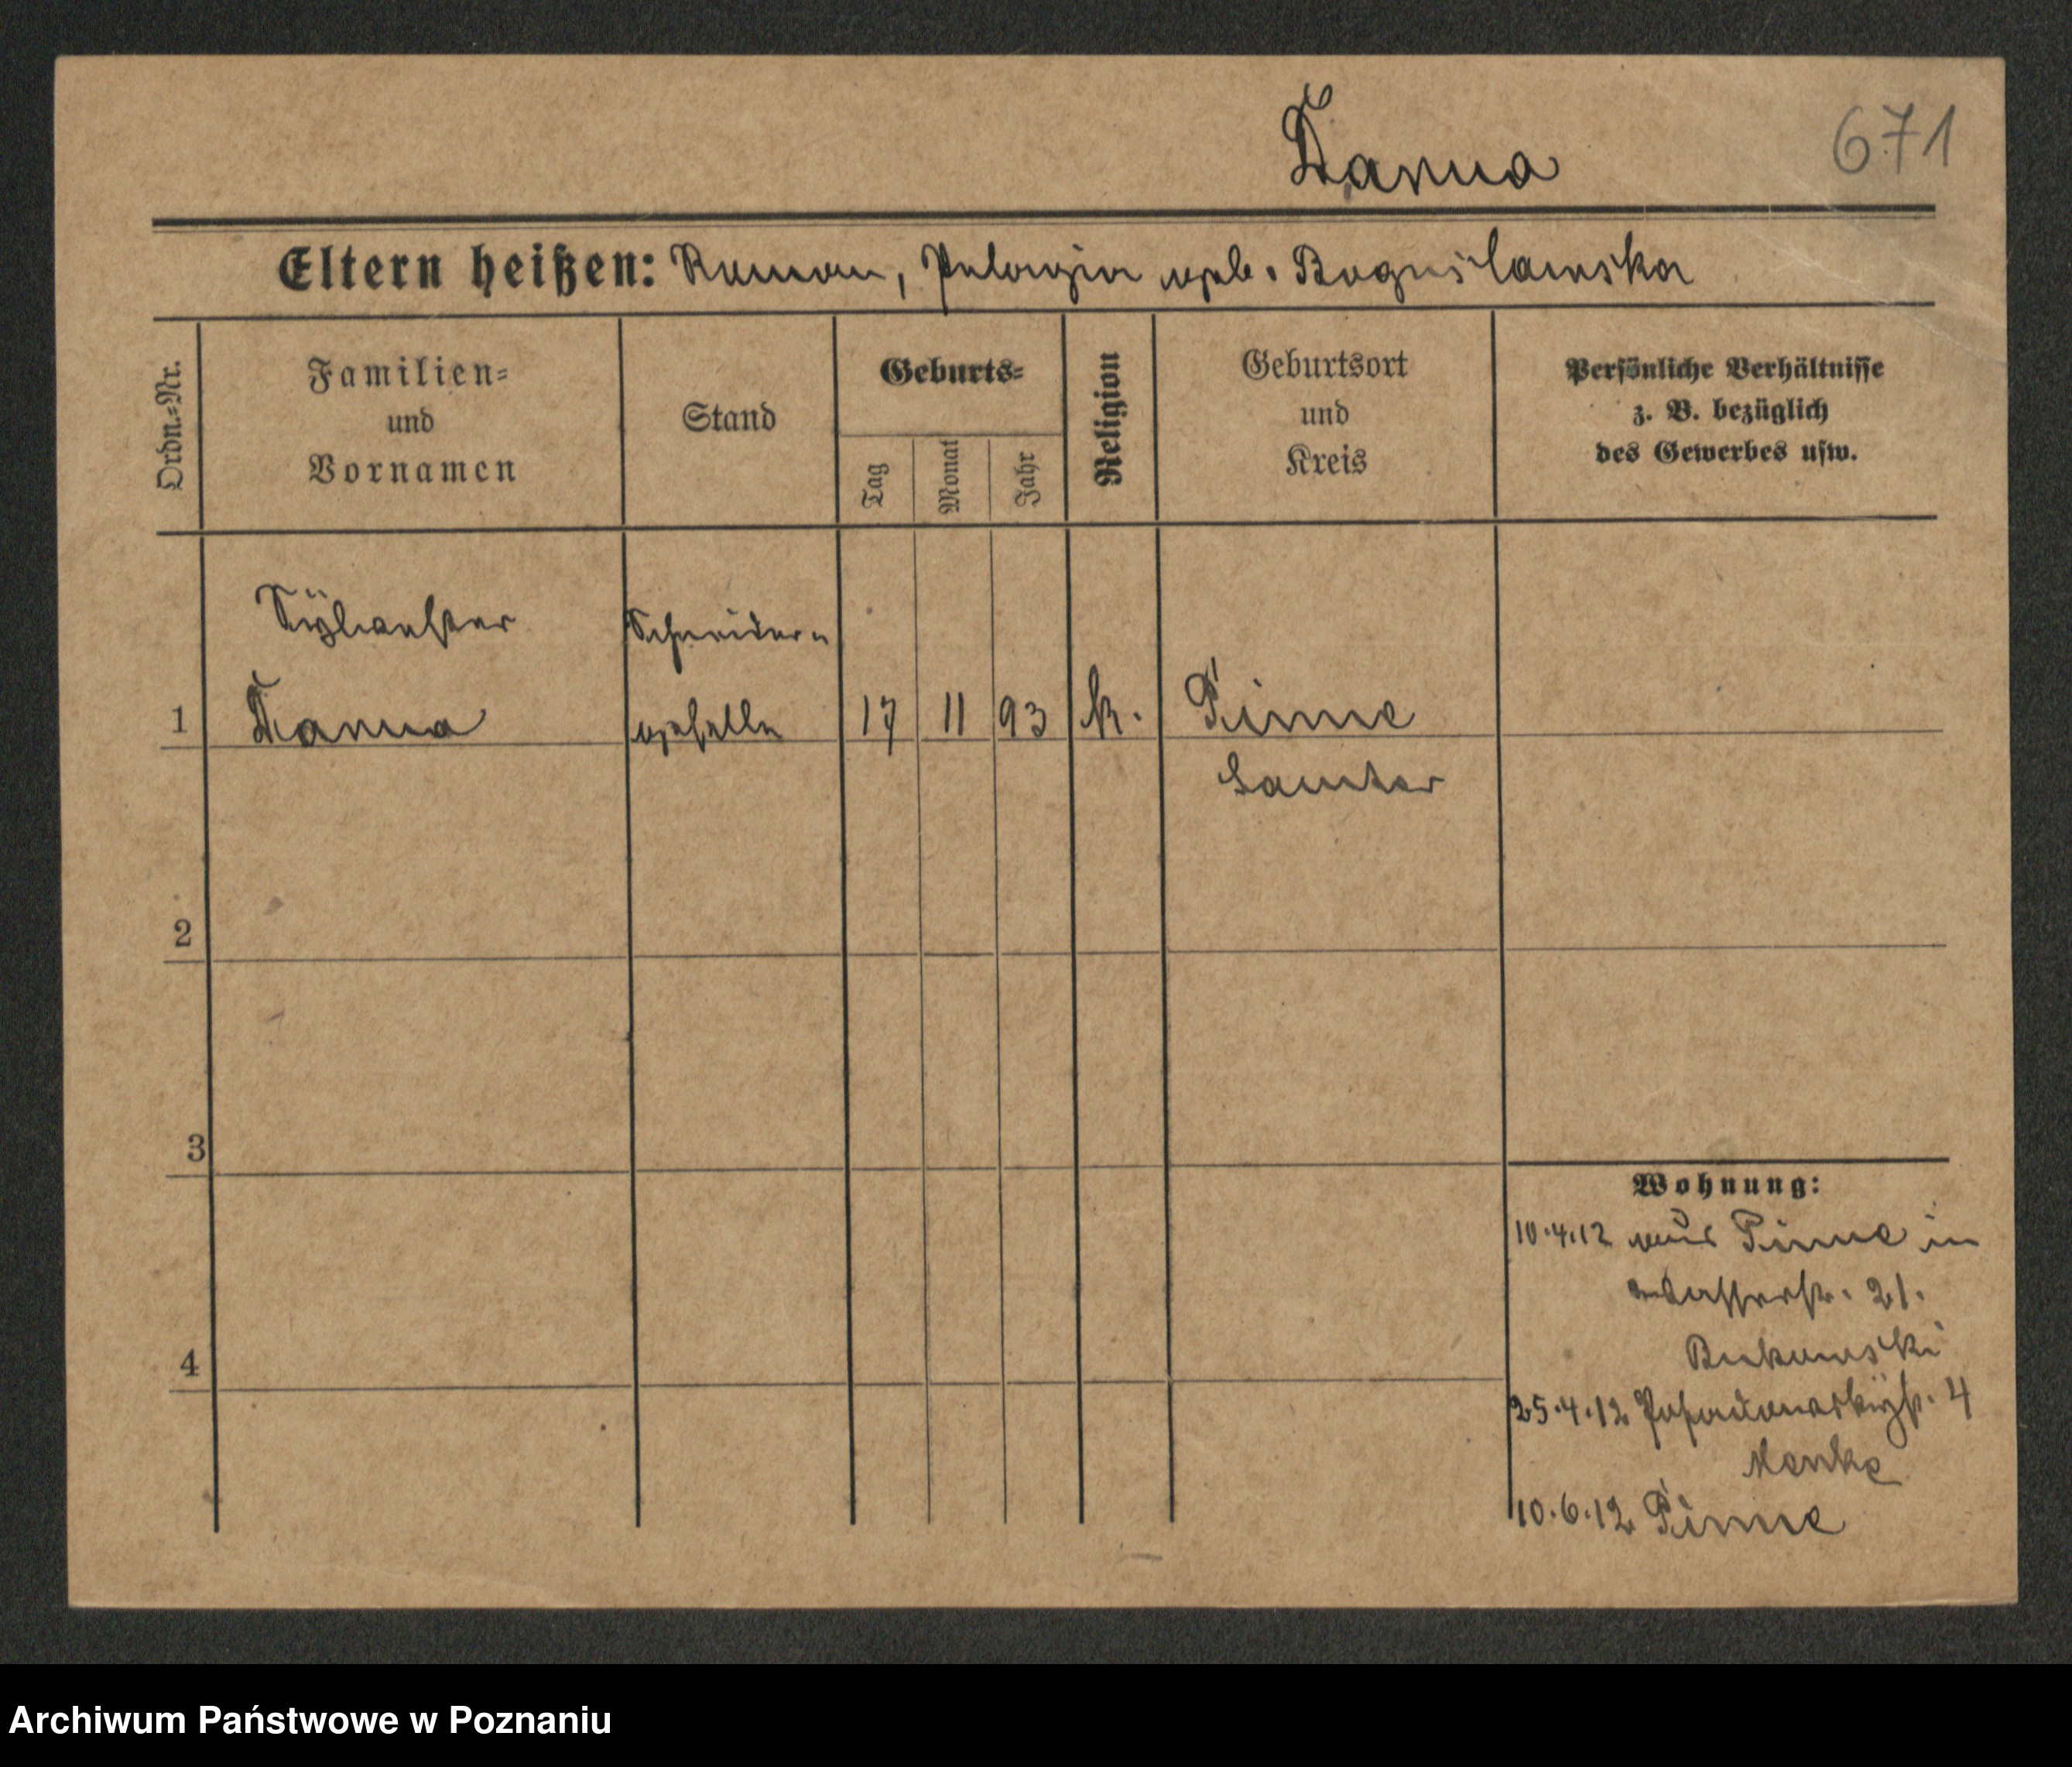 Danna
671
Eltern heißen: Roman, Pelagia geb. Boguslawska
Ordn.-Nr.
Familien-
und
Vornamen
Stand
Geburts-
Tag
Monat
Jahr
Religion
Geburtsort
und
Kreis
Persönliche Verhältnisse
z. B. bezüglich
des Gewerbes usw.
Sÿlvester
Schneider-
1 Danna
geselle 17 11 93 k. Pinne
Samter
2
3
Wohnung:
10.4.12 aus Pinne in
Wasserstr. 21.
Bukowski
4
25.4.12 Posadowskÿstr. 4
10.6.12 Pinne
Archiwum Państwowe w Poznaniu